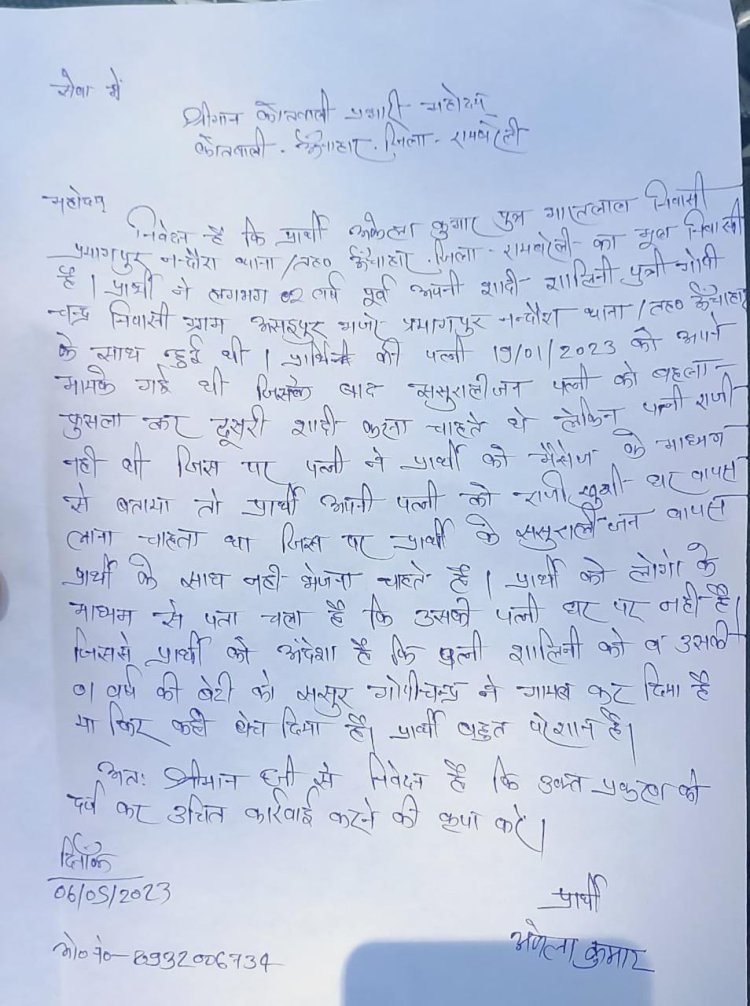 सेवा में
श्रीमान कोतवाली प्रभारी महोदय
कोतवाली. ऊँचाहार. जिला - रायबरेली
महोदय
निवेदन है कि प्रार्थी अकेला कुमार पुत्र निवासी
प्रयागपुर नन्दौरा थाना/तह० ऊँचाहार. जिला - रायबरेली का मूल निवासी
है। प्रार्थी ने लगभग 02 वर्ष पूर्व अपनी शादी शालिनी पुत्री गोपी
चन्द्र निवासी ग्राम मजरे प्रयागपुर नन्दौरा थाना/तह० ऊँचाहार
के साथ हुई थी। की पत्नी 19/01/2023 को अपने
मायके गई थी जिसके बाद ससुरालीजन पत्नी को बहला-
फुसला कर दूसरी शादी करना चाहते थे लेकिन पत्नी राजी
नही थी जिस पर पत्नी ने प्रार्थी को मैसेज के माध्यम
से बताया तो प्रार्थी अपनी पत्नी को राजी खुशी घर वापस
लाना चाहता था जिस पर प्रार्थी के ससुराली-जन वापस
प्रार्थी के साथ नही भेजना चाहते है। प्रार्थी को लोगो के
माध्यम से पता चला है कि उसकी पत्नी घर पर नही है।
जिससे प्रार्थी को अंदेशा है कि पत्नी शालिनी को व उसकी
01 वर्ष की बेटी को ससुर गोपीचन्द्र ने गायब कर दिया है
या फिर कही बेच दिया है। प्रार्थी बहुत परेशान है।
अतः श्रीमान जी से निवेदन है कि उक्त प्रकरण को
दर्ज कर उचित कार्रवाई करने की कृपा करे।
दिनाँक
06/05/2023
प्रार्थी
अकेला कुमार
मो० नं०- 8932006734